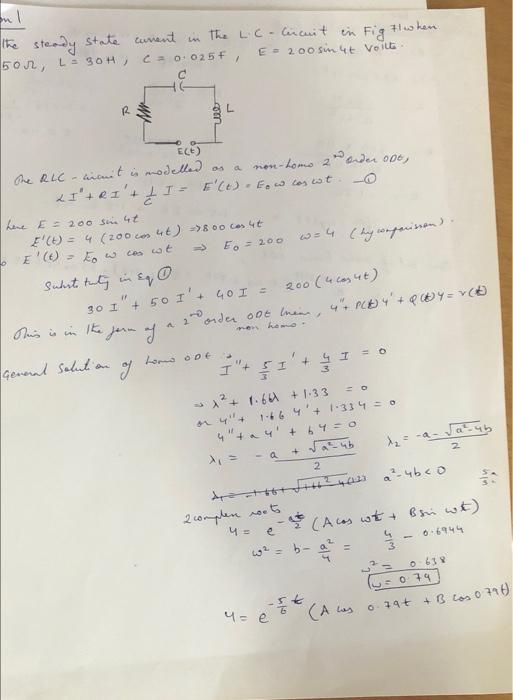 on 1
the steady state current in the L.C - Circuit in Fig 71 when
50Ω, L = 30H, C = 0.025F, E = 200 sin 4t Volts.
C
R
L
E(t)
One RLC - circuit is modelled as a non-homo 2nd order ODE,
LI'' + RI' + 1/C I = E'(t) = E₀ω cos ωt. - ①
here E = 200 sin 4t
E'(t) = 4 (200 cos 4t) => 800 cos 4t
o E'(t) = E₀ ω cos ωt => E₀ = 200 ω = 4 (by comparisson).
Substituty in Eq ①
30 I'' + 50 I' + 40 I = 200 (4 cos 4t)
This is in the form of a 2nd order ODE linear, y'' + P(t) y' + Q(t) y = r(t)
non homo.
General Solution of homo ODE is
I'' + 5/3 I' + 4/3 I = 0
=> λ² + 1.66λ + 1.33 = 0
or y'' + 1.66 y' + 1.33 y = 0
y'' + a y' + b y = 0
λ₁ = -a + √a²-4b / 2 λ₂ = -a - √a²-4b / 2
a² - 4b < 0 5/3
2 complex roots
y = e^-at/2 (A cos ωt + B sin ωt)
ω² = b - a²/4 = 4/3 - 0.6944
ω² = 0.638
ω = 0.79
y = e^-5/6 t (A cos 0.79t + B cos 0.79t)